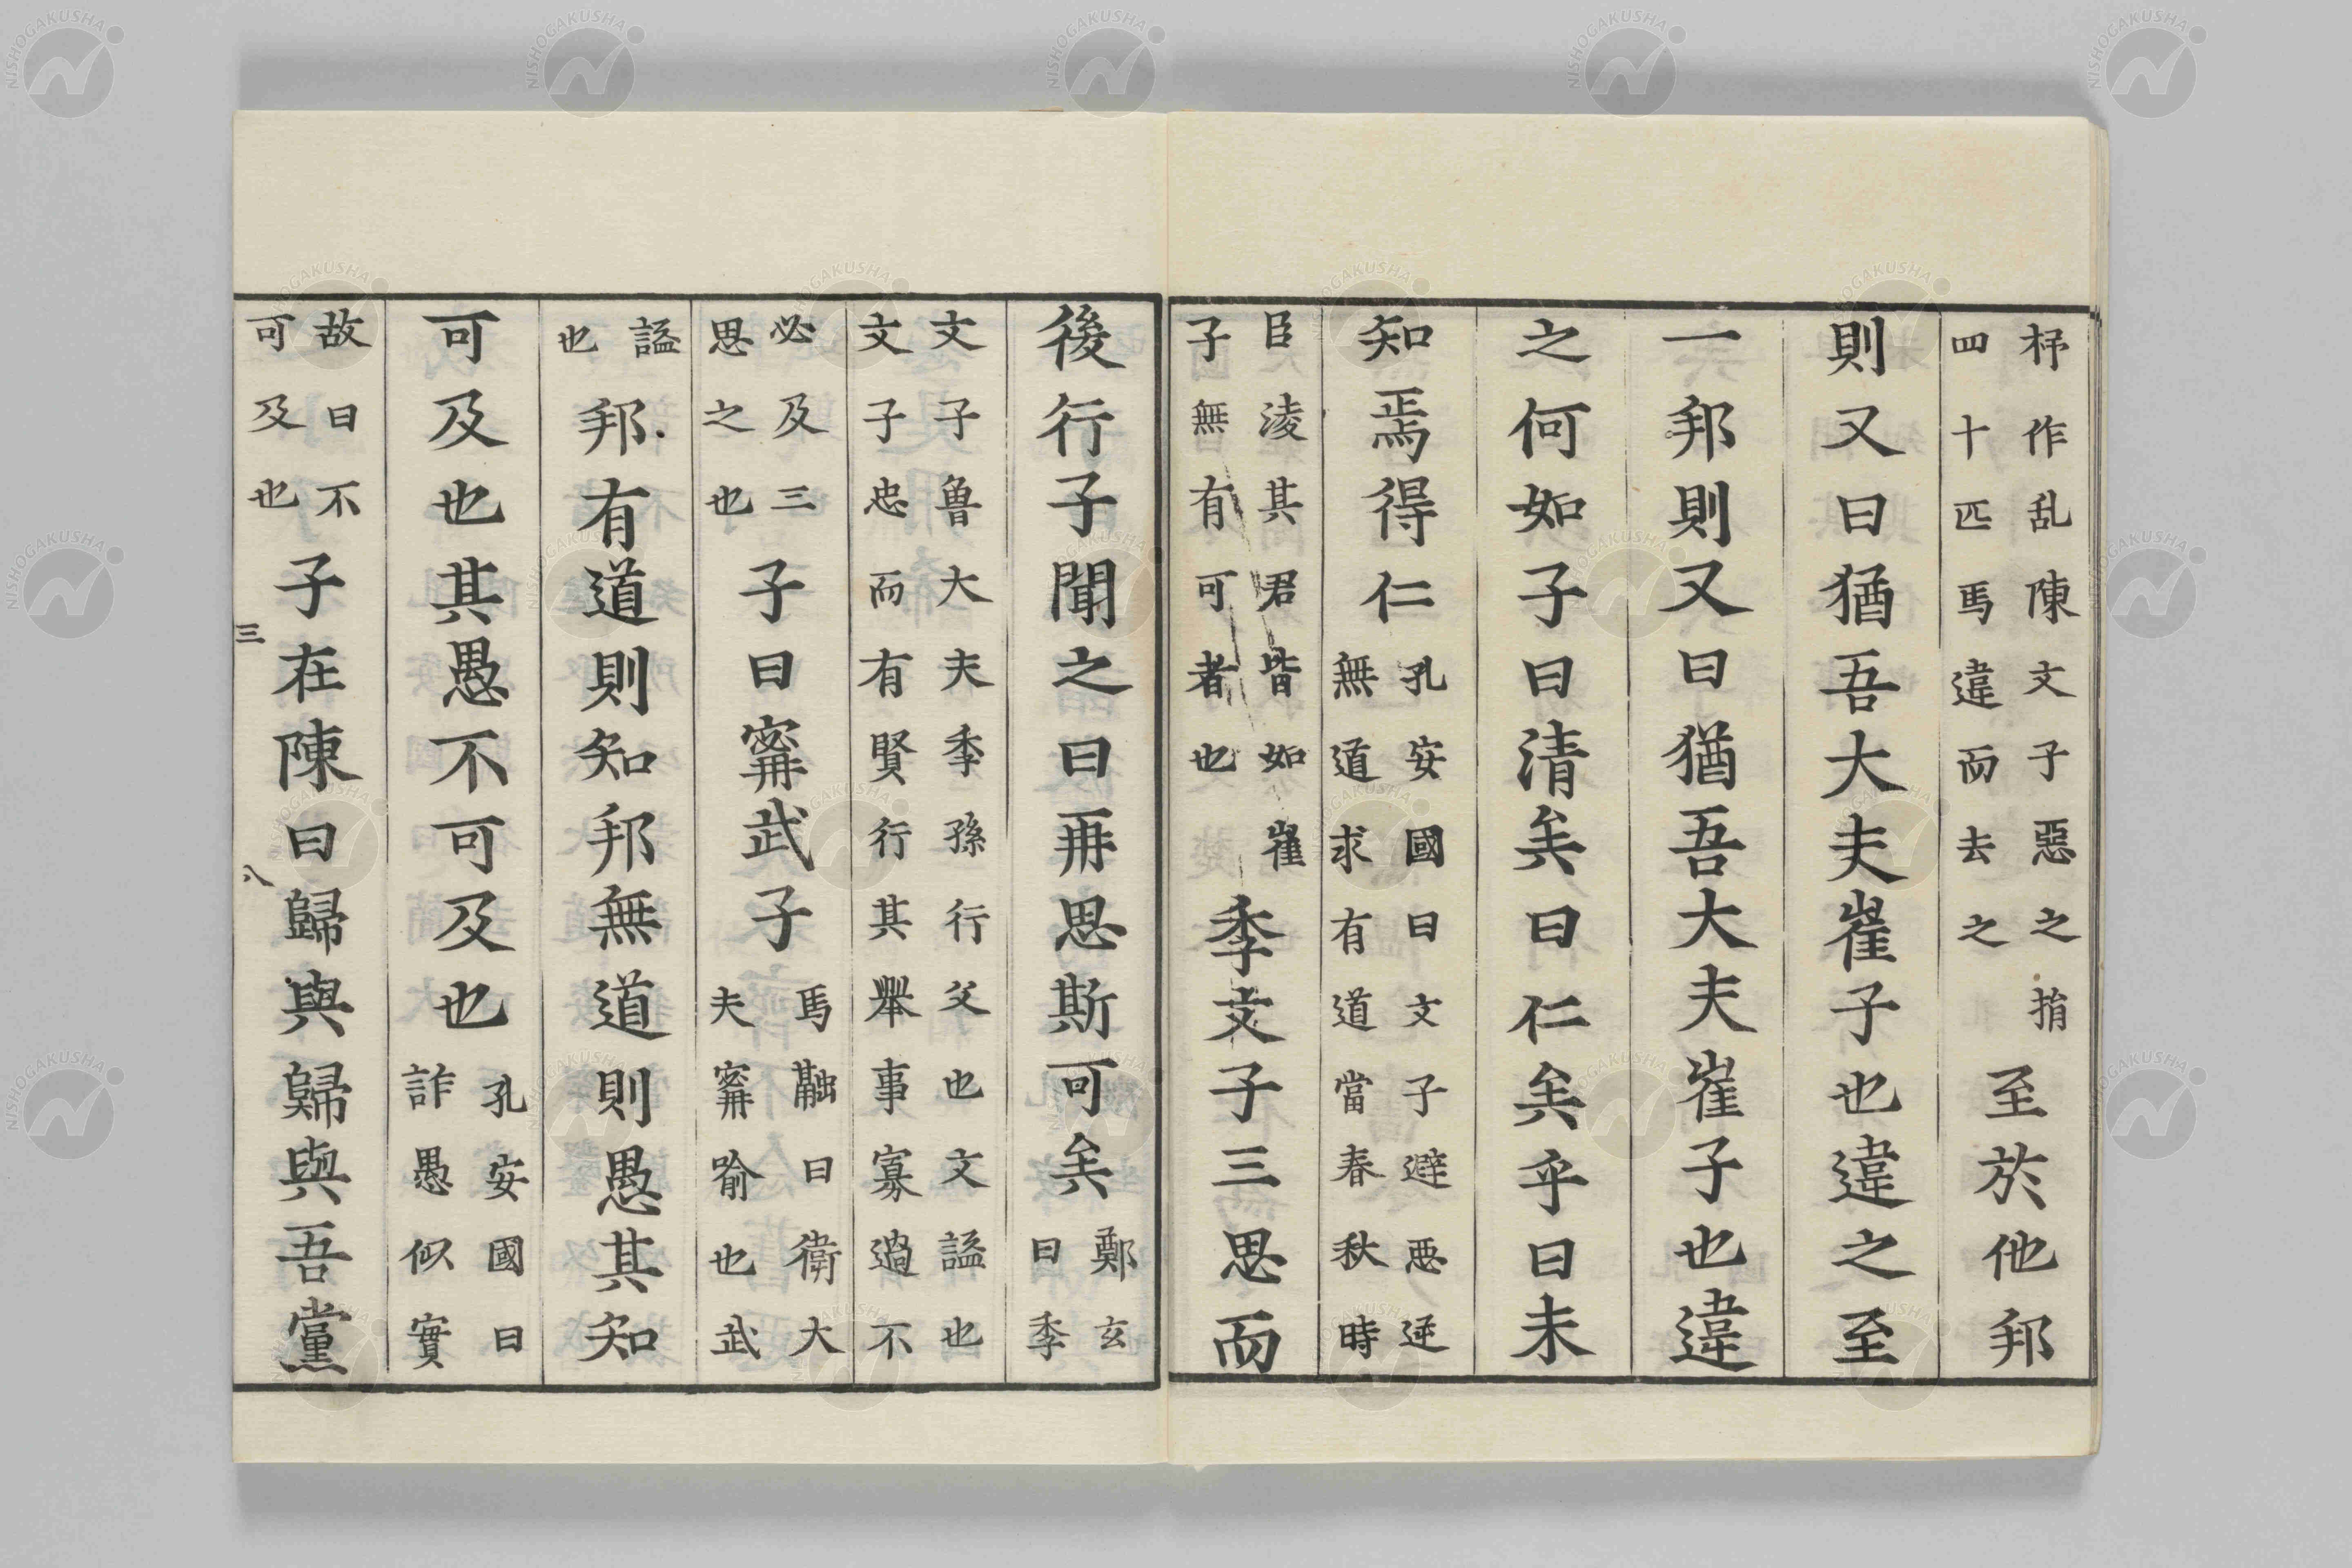 杼作乱陳文子惡之捐
四十匹馬違而去之
至於他邦
則又曰猶吾大夫崔子也違之至
一邦則又曰猶吾大夫崔子也違
之何如子曰清矣曰仁矣乎曰未
知焉得仁
孔安國曰文子避悪逆
無道求有道當春秋時
臣淩其君皆如崔
子無有可者也
季文子三思而
後行子聞之曰再思斯可矣
鄭玄
曰季
文子魯大夫季孫行父也文謚也
文子忠而有賢行其舉事寡過不
必及三
思之也
子曰寗武子
馬融曰衛大
夫寗喻也武
謚
也
邦有道則知邦無道則愚其知
可及也其愚不可及也
孔安國曰
詐愚似實
故曰不
可及也
子在陳曰歸與歸與吾黨
三
八
NISHOGAKUSHA